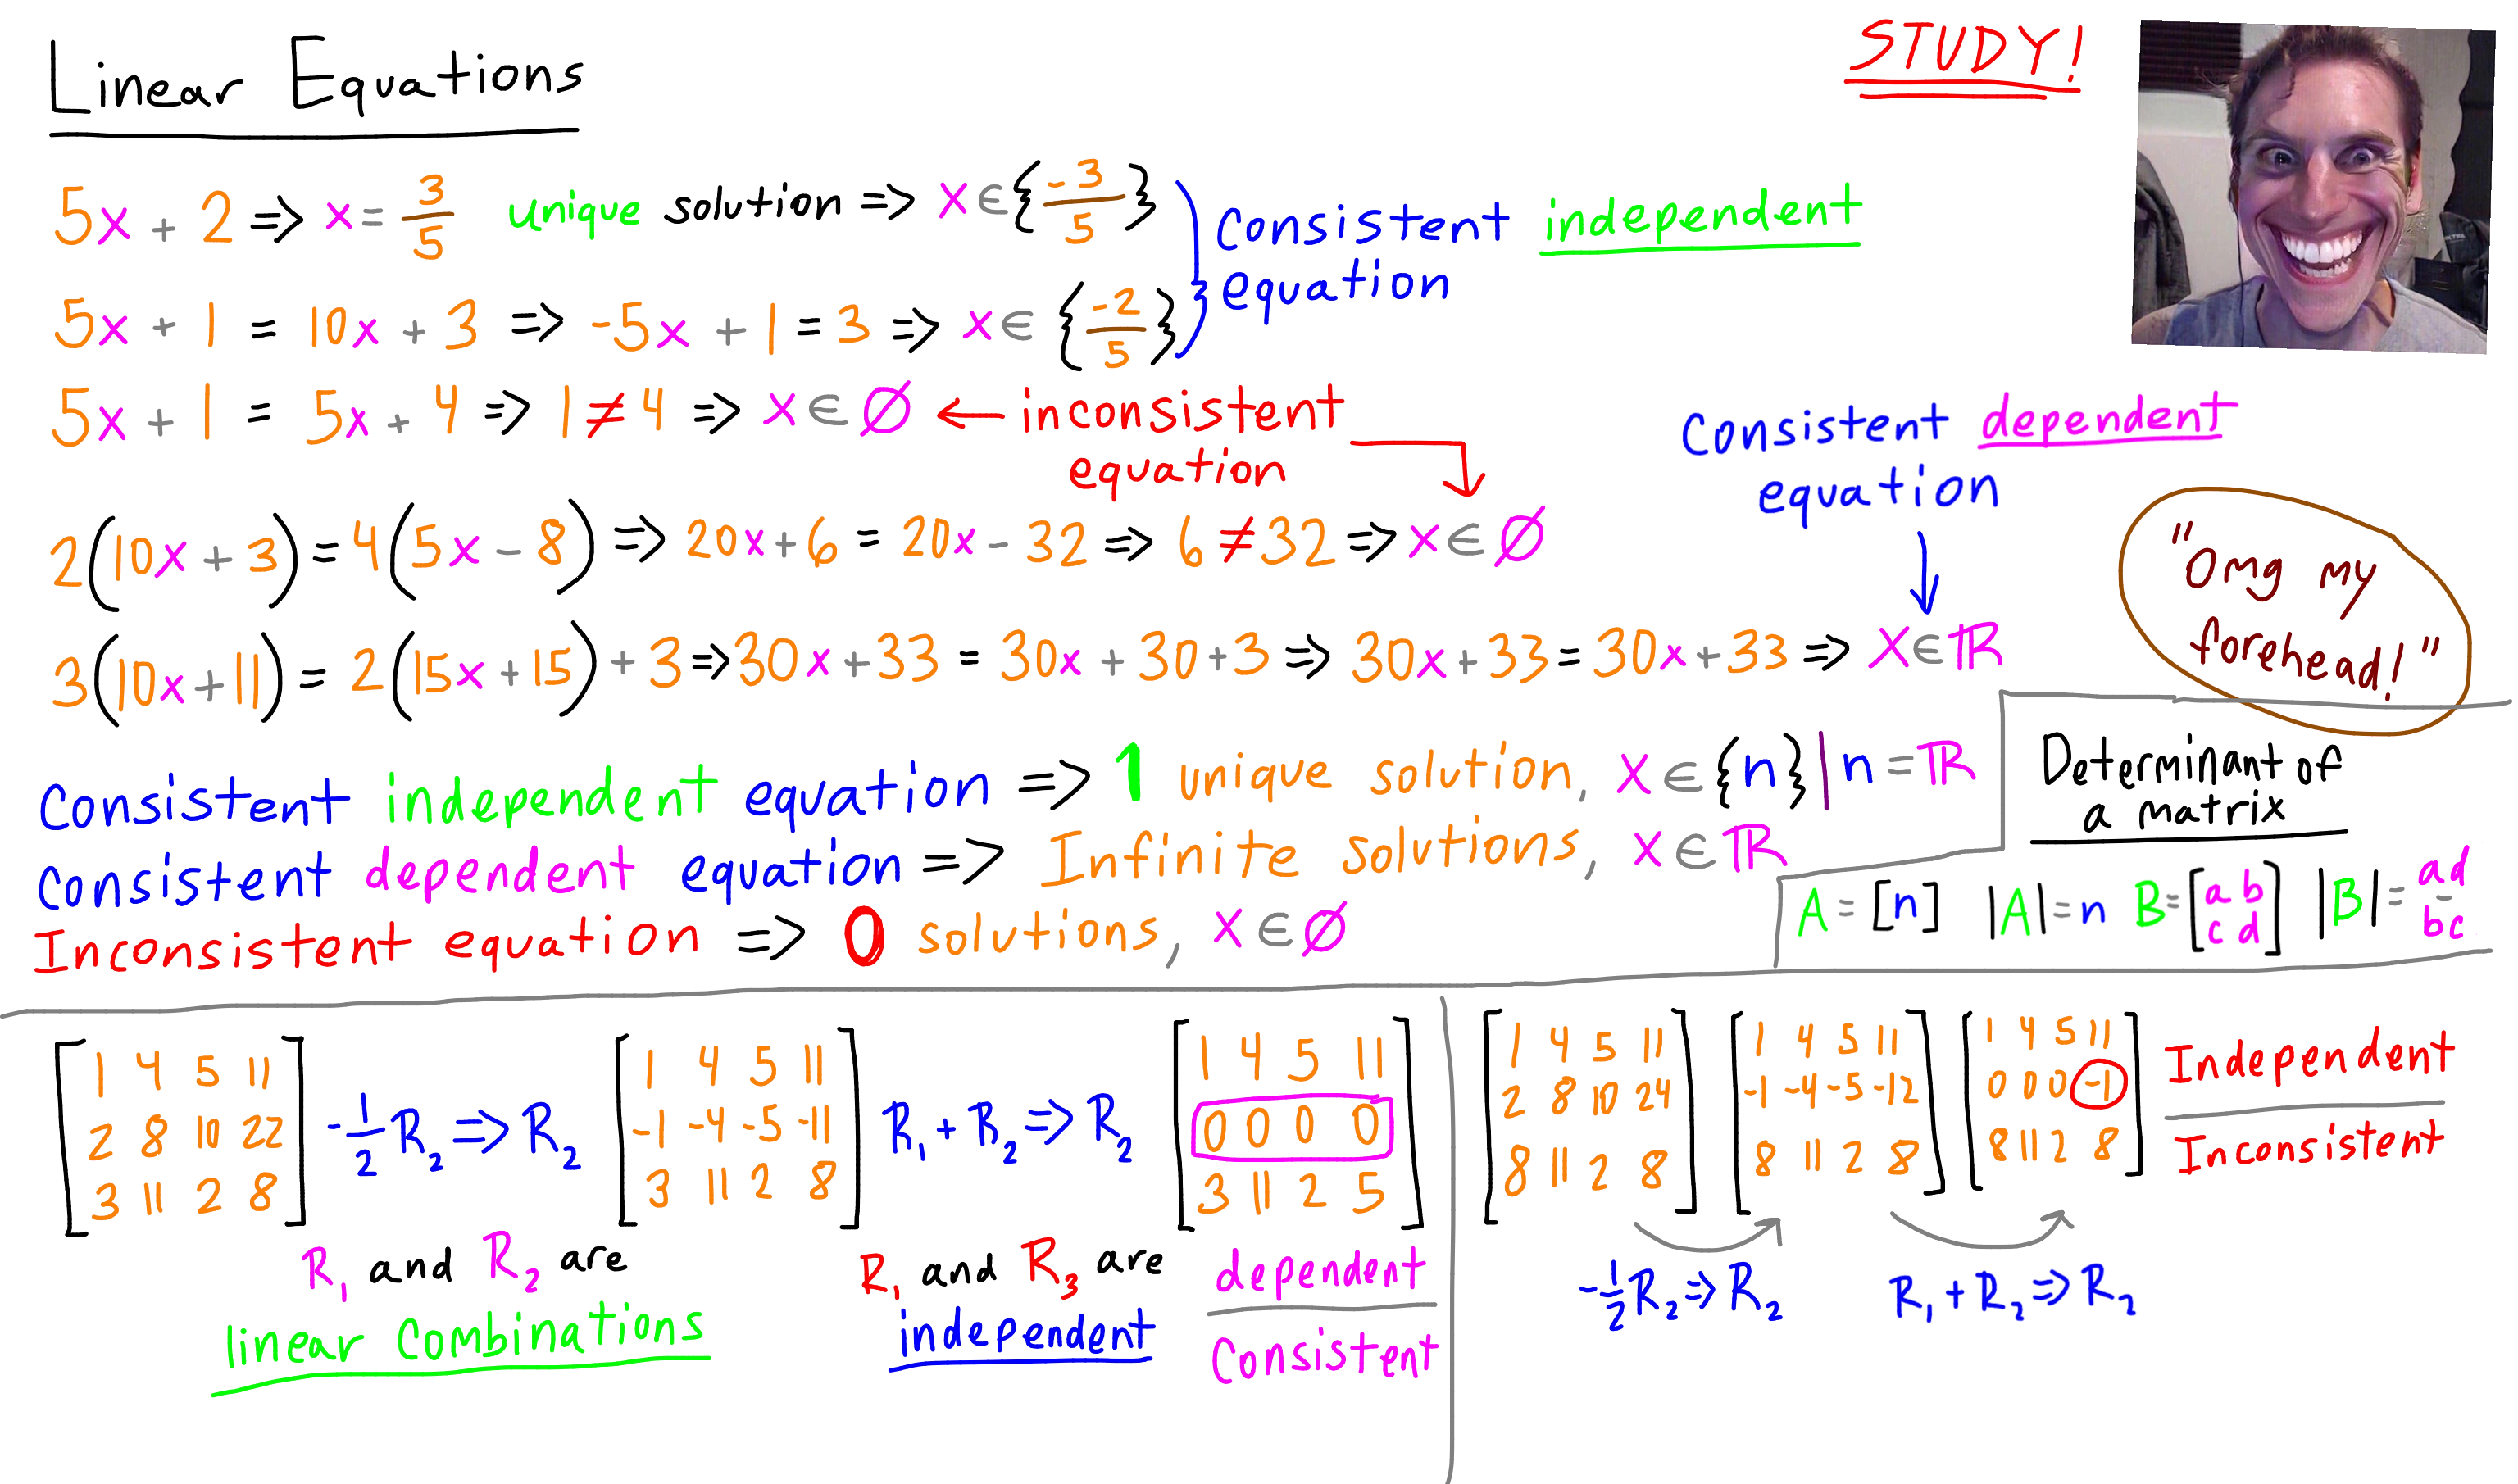 Linear Equations
STUDY!
5x + 2 => x = 3/5 unique solution => x ∈ {-3/5}
5x + 1 = 10x + 3 => -5x + 1 = 3 => x ∈ {-2/5}
Consistent independent
equation
5x + 1 = 5x + 4 => 1 ≠ 4 => x ∈ Ø ← inconsistent
equation
Consistent dependent
equation
2(10x + 3) = 4(5x - 8) => 20x + 6 = 20x - 32 => 6 ≠ 32 => x ∈ Ø
"Omg my
forehead!"
3(10x + 11) = 2(15x + 15) + 3 => 30x + 33 = 30x + 30 + 3 => 30x + 33 = 30x + 33 => x ∈ ℝ
Consistent independent equation => 1 unique solution, x ∈ {n} | n = ℝ
Consistent dependent equation => Infinite solutions, x ∈ ℝ
Inconsistent equation => 0 solutions, x ∈ Ø
Determinant of
a matrix
A = [n] |A| = n B = [a b
c d] |B| = ad
-
bc
1 4 5 11
2 8 10 22
3 11 2 8
-1/2 R₂ => R₂
1 4 5 11
-1 -4 -5 -11
3 11 2 8
R₁ + R₂ => R₂
1 4 5 11
0 0 0 0
3 11 2 5
R₁ and R₂ are
linear combinations
R₁ and R₃ are
independent
dependent
Consistent
1 4 5 11
2 8 10 24
8 11 2 8
1 4 5 11
-1 -4 -5 -12
8 11 2 8
1 4 5 11
0 0 0 -1
8 11 2 8
Independent
Inconsistent
-1/2 R₂ => R₂
R₁ + R₂ => R₂